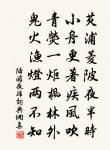 芡浦菱陂夜半時
小舟更著疾風吹
青熒一炬楓林外
鬼火漁燈兩不知
陸游夜